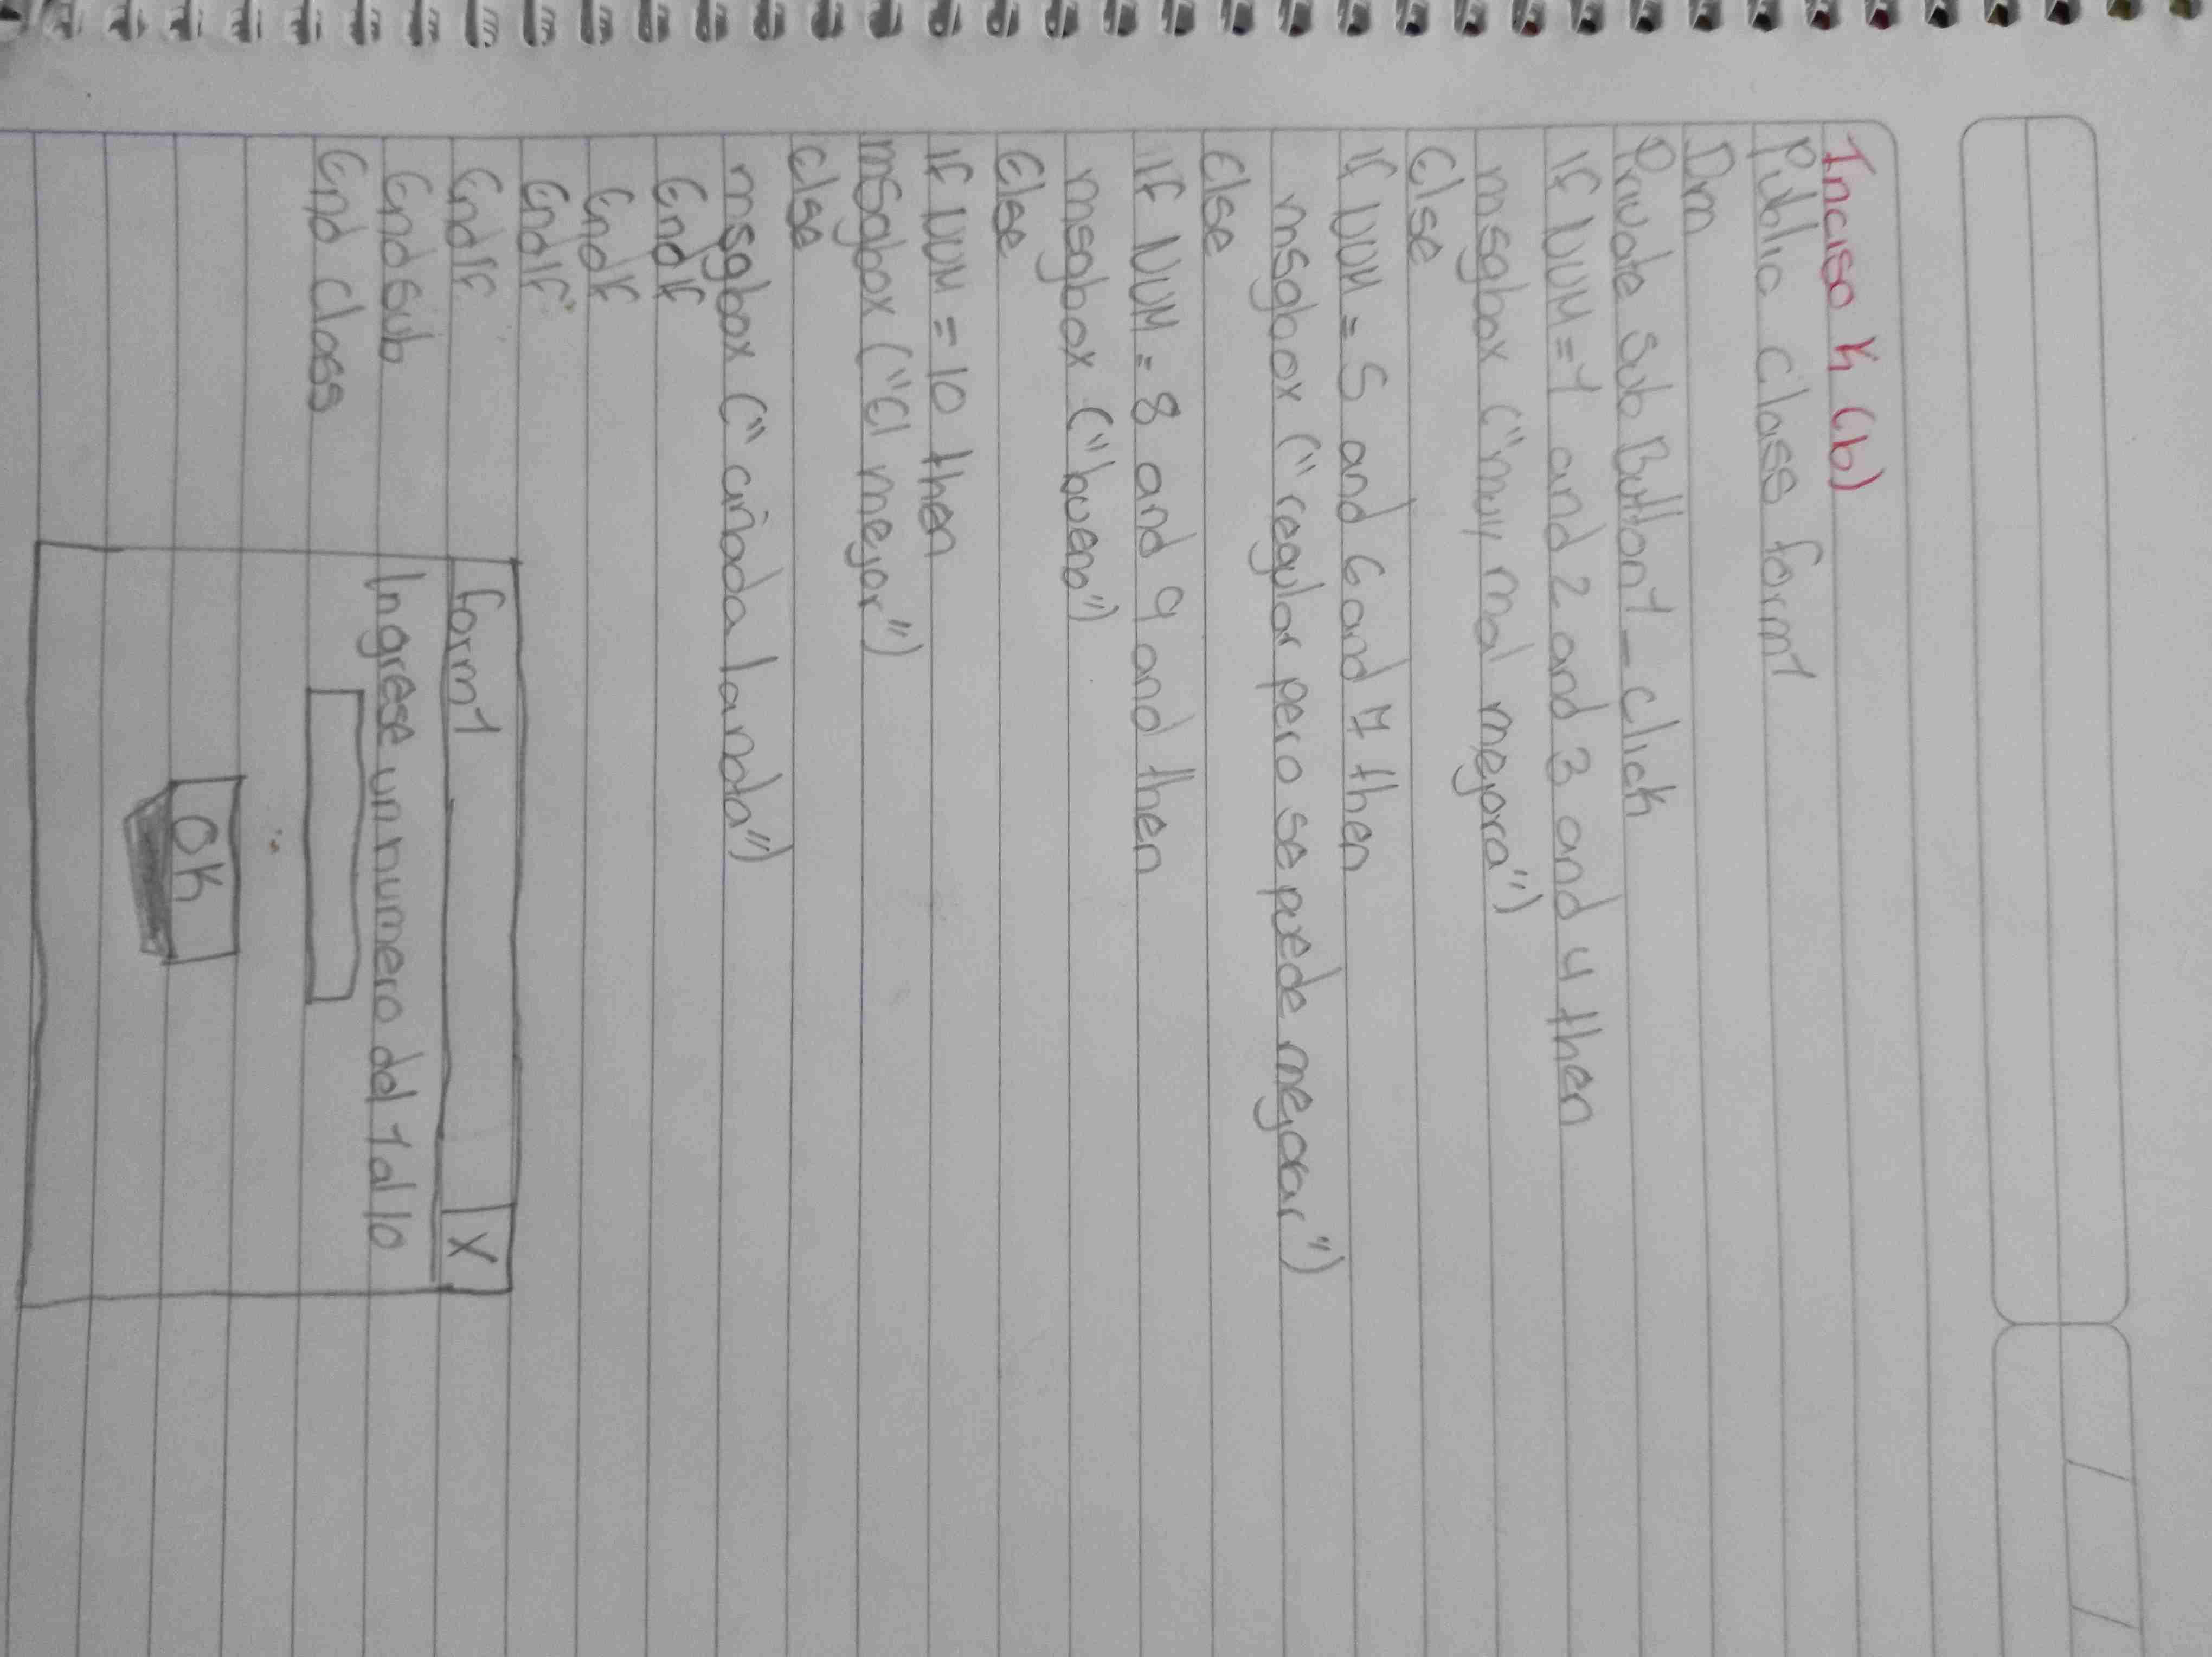 Inciso K (b)
Public class form1
Dm
Private Sub Button1_click
If NUM=1 and 2 and 3 and 4 then
msgbox ("muy mal mejora")
Else
If NUM=5 and 6 and 7 then
msgbox ("regular pero se puede mejorar")
Else
If NUM=8 and 9 and then
msgbox ("bueno")
Else
If NUM=10 then
msgbox ("El mejor")
Else
msgbox ("añada la nota")
End If
End If
End If
End If
End Sub
End Class
form1 X
Ingrese un numero del 1 al 10
OK